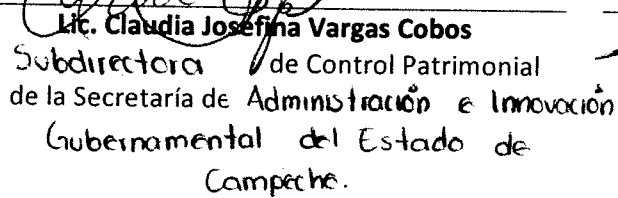 Lic. Claudia Josefina Vargas Cobos
Subdirectora de Control Patrimonial
de la Secretaría de Administración e Innovación
Gubernamental del Estado de
Campeche.